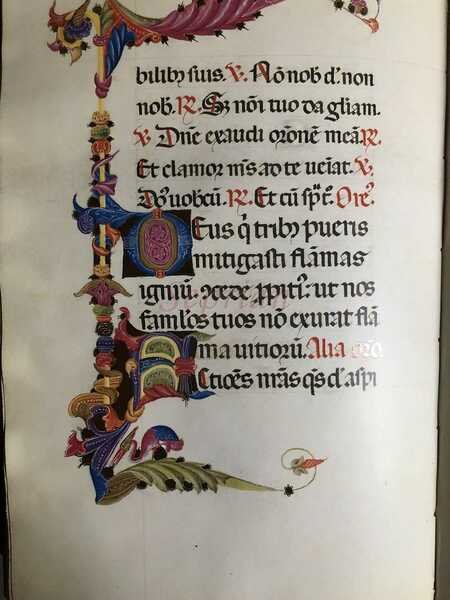 biliby suis. V. Nō nob d'. non
nob. R. Sz nōi tuo da gliam.
V. Dnē exaudi orōnē meā. R.
Et clamor m̄s ad te ueīat. V.
Dn̄s' uobcū. R. Et cū sp̄t'. Ore'.
Deus q̄ triby pueris
mitigasti flāmas
igniū: ɔcede ꝓpiti'. ut nos
famlos tuos nō exurat flā
ma uitiorū. Alia orō
Actiōēs nr̄as q̄s d'. aspi